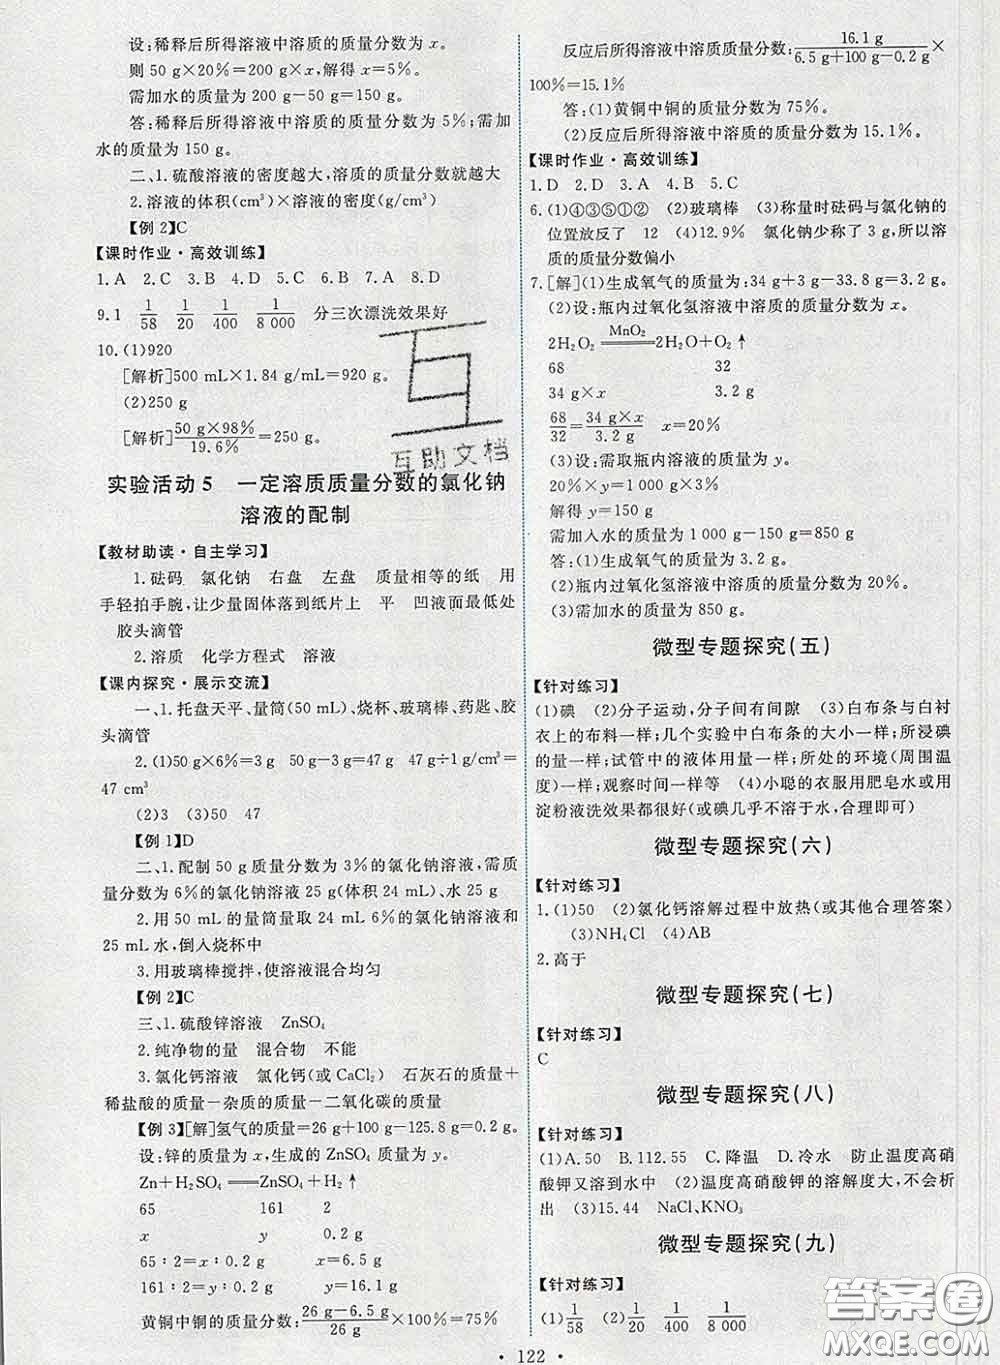 设:稀释后所得溶液中溶质的质量分数为 x。
则 50 g×20%=200 g×x,解得 x=5%。
需加水的质量为 200 g-50 g=150 g。
答:稀释后所得溶液中溶质的质量分数为 5%;需加
水的质量为 150 g。
二、1.硫酸溶液的密度越大,溶质的质量分数就越大
2.溶液的体积(cm³)×溶液的密度(g/cm³)
【例 2】C
【课时作业·高效训练】
1. A 2. C 3. C 4. D 5. B 6. D 7. A 8. D
9. 1 1/58 1/20 1/400 1/8 000 分三次漂洗效果好
10. (1)920
[解析]500 mL×1.84 g/mL=920 g。
(2)250 g
[解析]50 g×98%/19.6%=250 g。
实验活动 5 一定溶质质量分数的氯化钠
溶液的配制
【教材助读·自主学习】
1.砝码 氯化钠 右盘 左盘 质量相等的纸 用
手轻拍手腕,让少量固体落到纸片上 平 凹液面最低处
胶头滴管
2.溶质 化学方程式 溶液
【课内探究·展示交流】
一、1.托盘天平、量筒(50 mL)、烧杯、玻璃棒、药匙、胶
头滴管
2. (1)50 g×6%=3 g 50 g-3 g=47 g 47 g÷1 g/cm³=
47 cm³
(2)3 (3)50 47
【例 1】D
二、1.配制 50 g 质量分数为 3%的氯化钠溶液,需质
量分数为 6%的氯化钠溶液 25 g(体积 24 mL)、水 25 g
2.用 50 mL 的量筒量取 24 mL 6%的氯化钠溶液和
25 mL 水,倒入烧杯中
3.用玻璃棒搅拌,使溶液混合均匀
【例 2】C
三、1.硫酸锌溶液 ZnSO₄
2.纯净物的量 混合物 不能
3.氯化钙溶液 氯化钙(或 CaCl₂) 石灰石的质量+
稀盐酸的质量-杂质的质量-二氧化碳的质量
【例 3】[解]氢气的质量=26 g+100 g-125.8 g=0.2 g。
设:锌的质量为 x,生成的 ZnSO₄ 质量为 y。
Zn+H₂SO₄══ZnSO₄+H₂↑
65 161 2
x y 0.2 g
65∶2=x∶0.2 g x=6.5 g
161∶2=y∶0.2 g y=16.1 g
黄铜中铜的质量分数:26 g-6.5 g/26 g×100%=75%
反应后所得溶液中溶质质量分数:16.1 g/6.5 g+100 g-0.2 g×
100%=15.1%
答:(1)黄铜中铜的质量分数为 75%。
(2)反应后所得溶液中溶质的质量分数为 15.1%。
【课时作业·高效训练】
1. D 2. D 3. A 4. B 5. C
6. (1)④③⑤①② (2)玻璃棒 (3)称量时砝码与氯化钠的
位置放反了 12 (4)12.9% 氯化钠少称了 3 g,所以溶
质的质量分数偏小
7. [解](1)生成氧气的质量为:34 g+3 g-33.8 g=3.2 g。
(2)设:瓶内过氧化氢溶液中溶质的质量分数为 x。
2H₂O₂ ══MnO₂══ 2H₂O+O₂↑
68 32
34 g×x 3.2 g
68/32=34 g×x/3.2 g x=20%
(3)设:需取瓶内溶液的质量为 y。
20%×y=1 000 g×3%
解得 y=150 g
需加入水的质量为 1 000 g-150 g=850 g
答:(1)生成氧气的质量为 3.2 g。
(2)瓶内过氧化氢溶液中溶质的质量分数为 20%。
(3)需加水的质量为 850 g。
微型专题探究(五)
【针对练习】
(1)碘 (2)分子运动,分子间有间隙 (3)白布条与白衬
衣上的布料一样;几个实验中白布条的大小一样;所浸碘
的量一样;试管中的液体用量一样;所处的环境(周围温
度)一样;观察时间一样等 (4)小聪的衣服用肥皂水或用
淀粉液洗效果都很好(或碘几乎不溶于水,合理即可)
微型专题探究(六)
【针对练习】
1. (1)50 (2)氯化钙溶解过程中放热(或其他合理答案)
(3)NH₄Cl (4)AB
2.高于
微型专题探究(七)
【针对练习】
C
微型专题探究(八)
【针对练习】
(1)A. 50 B. 112.55 C.降温 D.冷水 防止温度高硝
酸钾又溶到水中 (2)温度高硝酸钾的溶解度大,不会析
出 (3)15.44 NaCl、KNO₃
微型专题探究(九)
【针对练习】
(1)1/58 (2)1/20 1/400 1/8 000
· 122 ·
互助文档
答案圈
MXQE.COM